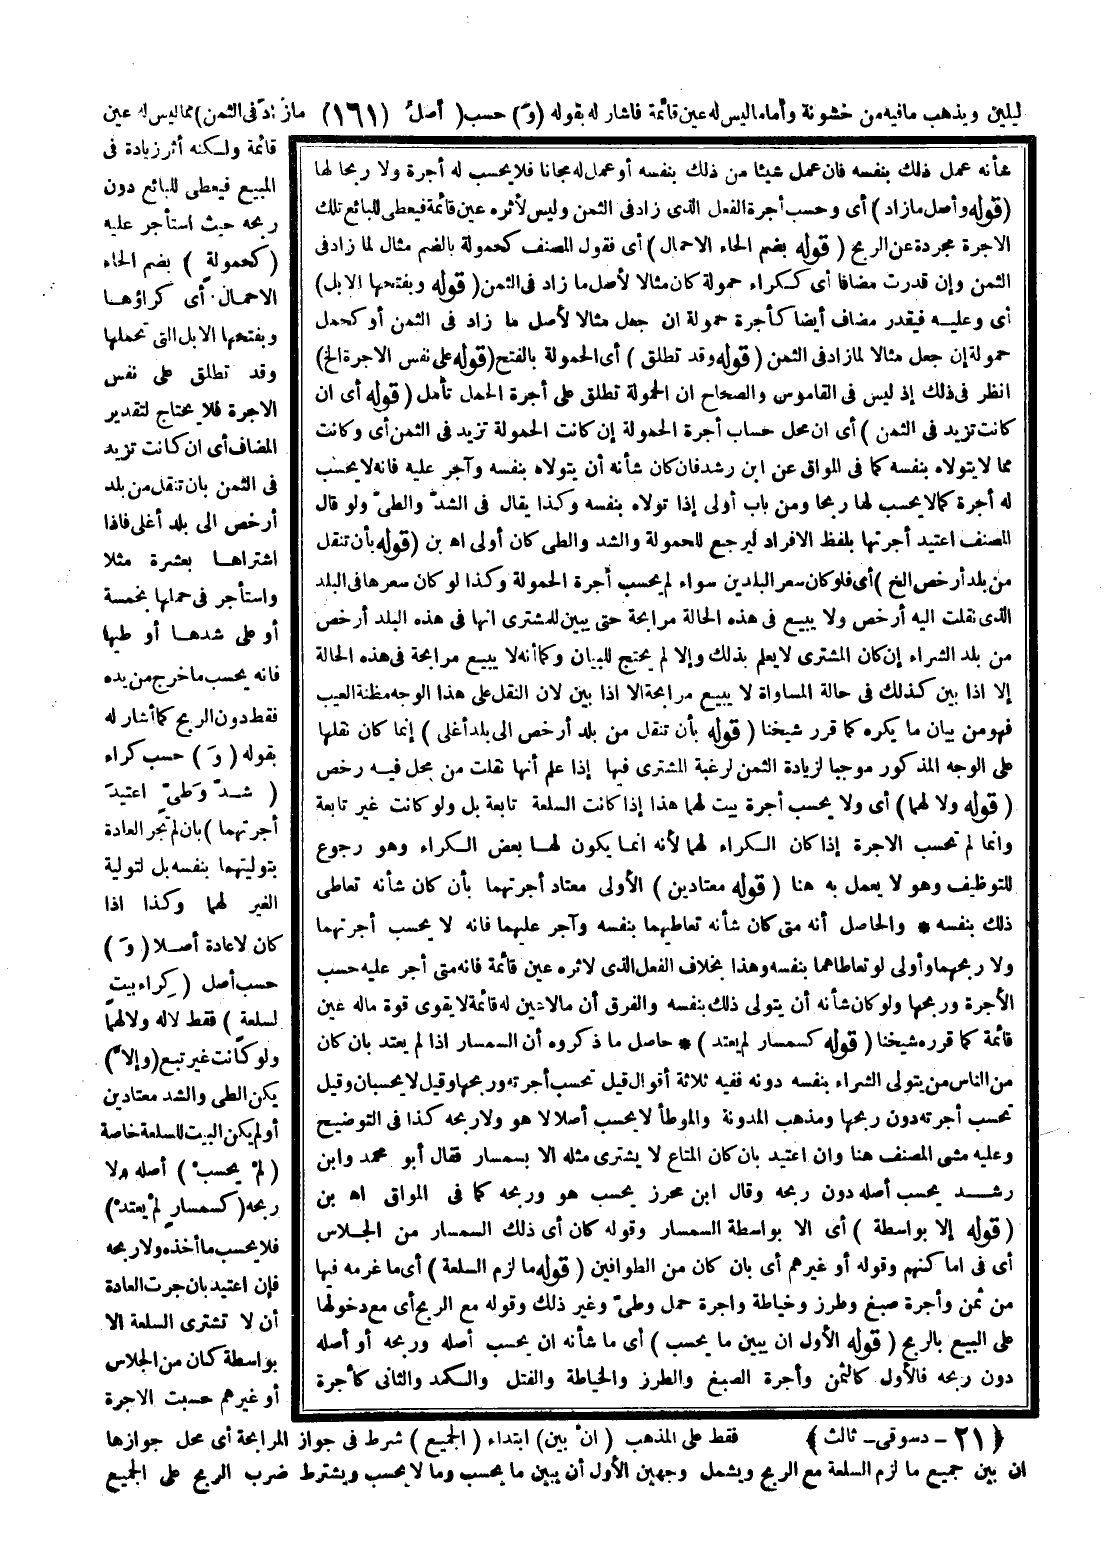 ليلين ويذهب مافيه من خشونة وأما ماليس له عين قائمة فاشار له بقوله (وَ) حسب (أصلُ (١٦١) ما زاد فى الثمن) مما ليس له عين
قائمة ولكنه أثر زيادة فى
المبيع فيعطى للبائع دون
ربحه حيث استأجر عليه
(كحمولة) بضم الحاء
الاحمال أى كراؤها
وبفتحها الابل التى تحملها
وقد تطلق على نفس
الاجرة فلا يحتاج لتقدير
المضاف أى ان كانت تزيد
فى الثمن بان تنقل من بلد
أرخص الى بلد أغلى فاذا
اشتراها بعشرة مثلا
واستأجر فى حملها بخمسة
أو على شدها أو طيها
فانه يحسب ما خرج من يده
فقط دون الربح كما أشار له
بقوله (وَ) حسب كراء
(شدّ وَطىّ اعتيدَ
أجرتهما) بان لم تجر العادة
بتوليتهما بنفسه بل لتولية
الغير لهما وكذا اذا
كان لاعادة أصلا (وَ)
حسب أصل (كِراء بيت
لسلعة) فقط لاله ولا لهما
ولو كانت غير تبع (وإلا)
يكن الطى والشد معتادين
أو لم يكن البيت للسلعة خاصة
(لمْ يحسبْ) أصله ولا
ربحه (كسمسارٍ لمْ يعتد)
فلا يحسب ما أخذه ولا ربحه
فإن اعتيد بان جرت العادة
أن لا تشترى السلعة الا
بواسطة كان من الجلاس
أو غيرهم حسبت الاجرة
شأنه عمل ذلك بنفسه فان عمل شيئا من ذلك بنفسه أو عمل له مجانا فلا يحسب له أجرة ولا ربحا لها
(قوله وأصل مازاد) أى وحسب أجرة الفعل الذى زاد فى الثمن وليس لأثره عين قائمة فيعطى للبائع تلك
الاجرة مجردة عن الربح (قوله بضم الحاء الاحمال) أى فقول المصنف كحمولة بالضم مثال لما زاد فى
الثمن وإن قدرت مضافا أى ككراء حمولة كان مثالا لأصل ما زاد فى الثمن (قوله وبفتحها الابل)
أى وعليه فيقدر مضاف أيضا كأجرة حمولة ان جعل مثالا لأصل ما زاد فى الثمن أو كحمل
حمولة إن جعل مثالا لما زاد فى الثمن (قوله وقد تطلق) أى الحمولة بالفتح (قوله على نفس الاجرة الخ)
انظر فى ذلك إذ ليس فى القاموس والصحاح ان الحمولة تطلق على أجرة الحمل تأمل (قوله أى ان
كانت تزيد فى الثمن) أى ان محل حساب أجرة الحمولة إن كانت الحمولة تزيد فى الثمن أى وكانت
مما لا يتولاه بنفسه كما فى المواق عن ابن رشد فان كان شأنه أن يتولاه بنفسه وآجر عليه فانه لا يحسب
له أجرة كما لا يحسب لها ربحا ومن باب أولى إذا تولاه بنفسه وكذا يقال فى الشدّ والطىّ ولو قال
المصنف اعتيد أجرتها بلفظ الافراد ليرجع للحمولة والشد والطى كان أولى اه بن (قوله بأن تنقل
من بلد أرخص الخ) أى فلو كان سعر البلدين سواء لم يحسب أجرة الحمولة وكذا لو كان سعرها فى البلد
الذى نقلت اليه أرخص ولا يبيع فى هذه الحالة مرابحة حتى يبين للمشترى انها فى هذه البلد أرخص
من بلد الشراء إن كان المشترى لا يعلم بذلك وإلا لم يحتج للبيان وكما أنه لا يبيع مرابحة فى هذه الحالة
إلا اذا بين كذلك فى حالة المساواة لا يبيع مرابحة الا اذا بين لان النقل على هذا الوجه مظنة العيب
فهو من بيان ما يكره كما قرر شيخنا (قوله بأن تنقل من بلد أرخص الى بلد أغلى) إنما كان نقلها
على الوجه المذكور موجبا لزيادة الثمن لرغبة المشترى فيها إذا علم أنها نقلت من محل فيه رخص
(قوله ولا لهما) أى ولا يحسب أجرة بيت لهما هذا إذا كانت السلعة تابعة بل ولو كانت غير تابعة
وانما لم تحسب الاجرة إذا كان الكراء لهما لأنه انما يكون لها بعض الكراء وهو رجوع
للتوظيف وهو لا يعمل به هنا (قوله معتادين) الأولى معتاد أجرتهما بأن كان شأنه تعاطى
ذلك بنفسه * والحاصل أنه متى كان شأنه تعاطيهما بنفسه وآجر عليهما فانه لا يحسب أجرتهما
ولا ربحهما وأولى لو تعاطاهما بنفسه وهذا بخلاف الفعل الذى لاثره عين قائمة فانه متى أجر عليه حسب
الأجرة وربحها ولو كان شأنه أن يتولى ذلك بنفسه والفرق أن مالا عين له قائمة لا يقوى قوة ماله عين
قائمة كما قرره شيخنا (قوله كسمسار لم يعتد) * حاصل ما ذكروه أن السمسار اذا لم يعتد بان كان
من الناس من يتولى الشراء بنفسه دونه ففيه ثلاثة أقوال قيل تحسب أجرته وربحها وقيل لا يحسبان وقيل
تحسب أجرته دون ربحها ومذهب المدونة والموطأ لا يحسب أصلا لا هو ولا ربحه كذا فى التوضيح
وعليه مشى المصنف هنا وان اعتيد بان كان المتاع لا يشترى مثله الا بسمسار فقال أبو محمد وابن
رشد يحسب أصله دون ربحه وقال ابن محرز يحسب هو وربحه كما فى المواق اه بن
(قوله إلا بواسطة) أى الا بواسطة السمسار وقوله كان أى ذلك السمسار من الجلاس
أى فى اماكنهم وقوله أو غيرهم أى بان كان من الطوافين (قوله ما لزم السلعة) أى ما غرمه فيها
من ثمن وأجرة صبغ وطرز وخياطة واجرة حمل وطىّ وغير ذلك وقوله مع الربح أى مع دخولها
على البيع بالربح (قوله الأول ان يبين ما يحسب) أى ما شأنه ان يحسب أصله وربحه أو أصله
دون ربحه فالأول كالثمن وأجرة الصبغ والطرز والخياطة والفتل والكمد والثانى كأجرة
(٢١ - دسوقى - ثالث) فقط على المذهب (انْ بين) ابتداء (الجميع) شرط فى جواز المرابحة أى محل جوازها
ان بين جميع ما لزم السلعة مع الربح ويشمل وجهين الأول أن يبين ما يحسب وما لا يحسب ويشترط ضرب الربح على الجميع